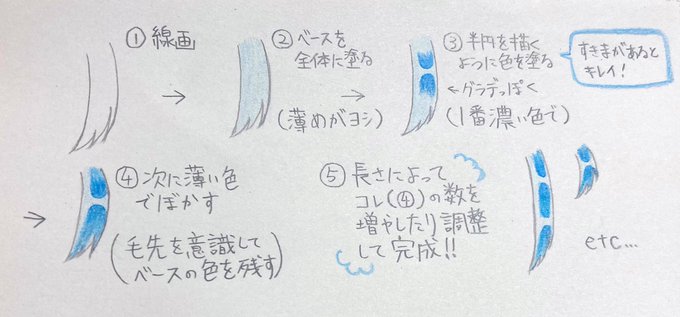 ① 線画
② ベースを
全体に塗る
(薄めがヨシ)
③ 半円を描く
ように色を塗る
←グラデっぽく
(1番濃い色で)
すきまがあると
キレイ!
④ 次に薄い色
でぼかす
(毛先を意識して
ベースの色を残す)
⑤ 長さによって
コレ(④)の数を
増やしたり調整
して完成!!
etc...